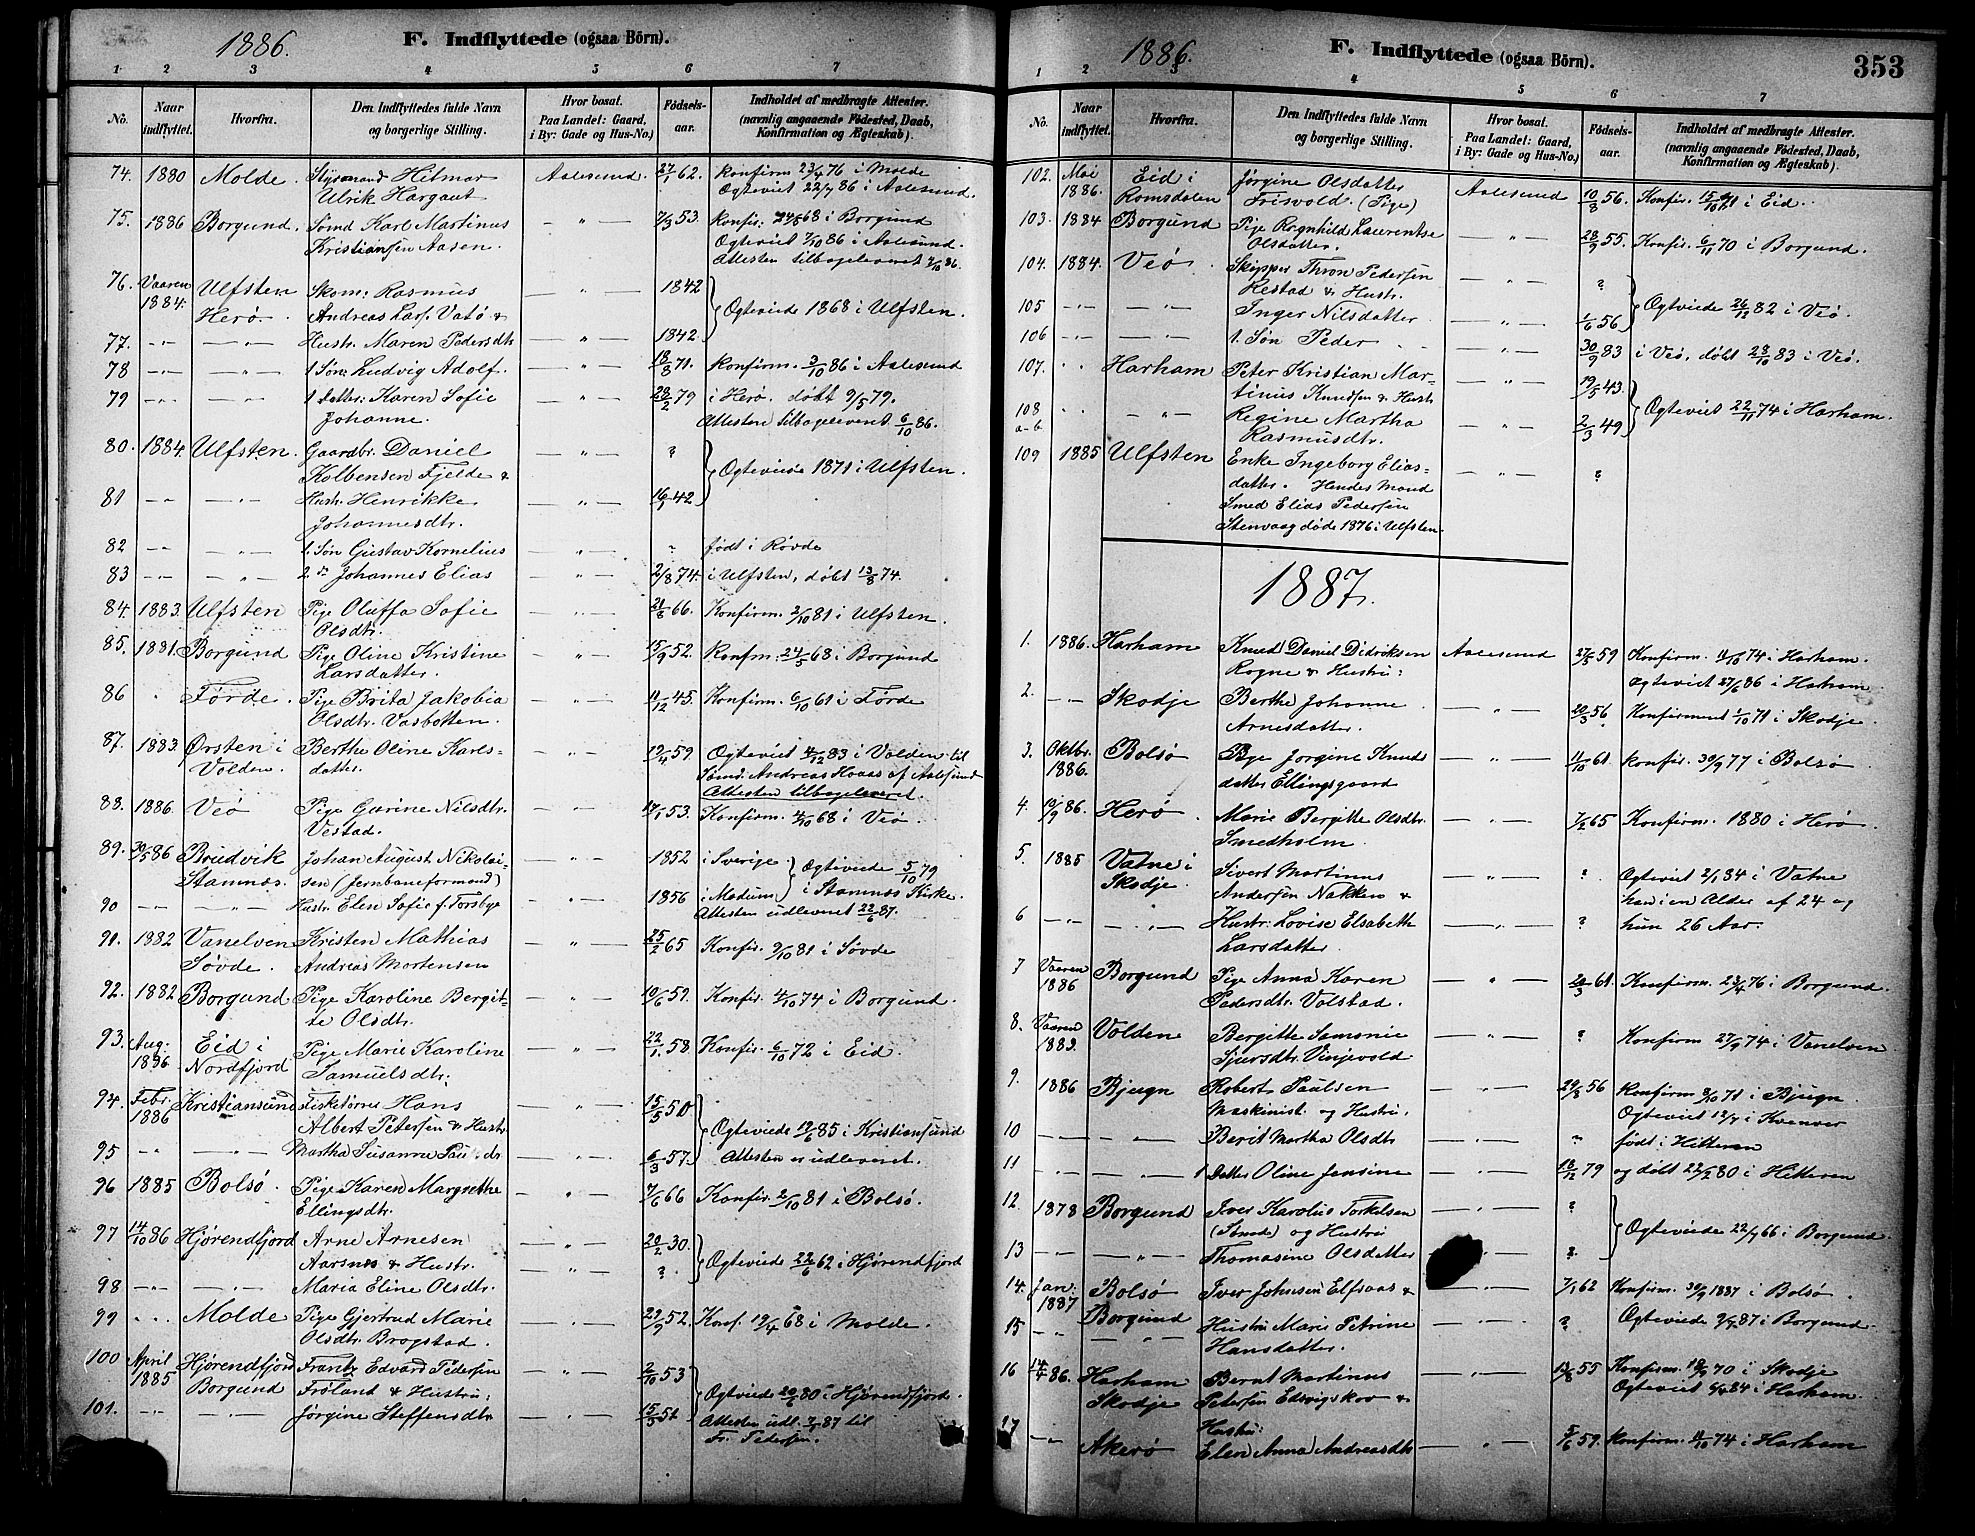 1886.
F. Indflyttede (ogsaa Börn).
1 2 3 4 5 6 7
No.
Naar indflyttet.
Hvorfra.
Den Indflyttedes fulde Navn og borgerlige Stilling.
Hvor bosat. Paa Landet: Gaard, i By: Gade og Hus-No.)
Födsels-aar.
Indholdet af medbragte Attester. (navnlig angaaende Födested, Daab, Konfirmation og Ægteskab.)
74. 1880 Molde. Styrmand Hilmar Aalesund. 27/1 62. Konfirm 23/4 76 i Molde
Ulrik Hargaut Ogteviet 22/7 86 i Aalesund.
75. 1886 Borgund. Sømd Karl Martinus — " — 7/3 53. Konfir. 24/5 68 i Borgund
Kristiansen Aasen. Ogteviet 7/10 86 i Aalesund.
Attesten tilbageleveret 7/10 86.
76. Vaaren Ulfsten Skom: Rasmus — " — 1842
1884. Herø. Andreas Lars. Vatø & Ogteviede 1868 i Ulfsten.
77. — " — — " — Hustr. Maren Pedersdtr — " — 1842.
78 — " — — " — 1 Søn: Ludvig Adolf. — " — 18/8 71. Konfirm. 3/10 86 i Aalesund
79 — " — — " — 1 Datter: Karen Sofie — " — 28/2 79 i Herø. døbt 9/5 79.
Johanne. Attesten tilbageleveret 6/10 86.
80. 1884. Ulfsten. Gaardbr. Daniel — " — ?
Kolbensen Fjelde & Ogteviede 1871 i Ulfsten.
81 — " — — " — Hustr. Henrikke — " — 16/9 42
Johannesdtr.
82 — " — — " — 1. Søn Gustav Kornelius — " — ? født i Røvde
83 — " — — " — 2. Johannes Elias — " — 2/8 74. i Ulfsten, døbt 13/8 74.
84. 1883. Ulfsten Pige Oluffa Sofie — " — 21/8 66. Konfirm. 2/10 81 i Ulfsten.
Olsdtr.
85. 1881. Borgund Pige Oline Kristine — " — 15/9 52. Konfm. 24/5 68 i Borgund
Larsdatter.
86 " Førde. Pige Brita Jakobia — " — 11/12 45. Konfirm. 6/10 61 i Førde
Olsdtr. Vasbotten.
87. 1883. Ørsten i Berthe Oline Karls- — " — 12/4 59. Ogteviet 4/12 83 i Volden til
Volden. datter. Sømd. Andreas Haas af Aalesund
Attesten tilbageleveret.
88. 1886. Veø Pige Gurine Nilsdtr. — " — 17/1 53. Konfirm. 4/10 68 i Veø.
Vestad.
89. 30/5 86 Brudvik Johan August Nikolai- — " — 1852 i Sverige Ogteviede 5/10 79
Stamnæs. sen (Jernbaneformand) i Stamnæs Kirke.
90 — " — — " — Hustr. Elen Sofie f. Torsbye — " — 1856 i Modum
Attesten udleveret 22/6 87.
91. 1882 Vanelven Kristen Mathias — " — 25/2 65 Konfir. 9/10 81 i Søvde
Søvde. Andreas Mortensen
92. 1882 Borgund Pige Karoline Bergit- — " — 10/6 59. Konfir. 4/10 74 i Borgund.
te Olsdtr.
93. Aug. Eid i Pige Marie Karoline — " — 22/1 58. Konfir. 6/10 72 i Eid.
1886 Nordfjord Samuelsdtr.
94. Febr. Kristiansund Fisketørrer Hans — " — 15/5 50
1886 Albert Petersen & Hustr. Ogteviede 19/6 85 i Kristiansund
95 — " — — " — Martha Susanne — " — 6/3 57. Attesten er udleveret.
96 1885 Bolsø. Pige Karen Margrethe — " — 7/6 66 Konfir. 2/10 81 i Bolsø.
Ellingsdtr.
97 14/10 86 Hjørendfjord Arne Arnesen — " — 20/2 30.
Aarsnes & Hustr. Ogteviede 22/6 62 i Hjørendfjord
98 — " — — " — Maria Eline Olsdtr. — " — ?
99 " Molde Pige Gjertrud Marie — " — 29/9 52. Konf. 19/4 68 i Molde.
Olsdtr. Brogstad.
100 April Hjørendfjord Frantz Edvard Pedersen — " — 2/10 53
1885 Borgund Frøland & Hustru: Ogteviede 20/6 80 i Hjørendfjord.
101. — " — — " — Jørgine Steffensdtr — " — 15/5 51 Attesten udl. 7/1 87 til
Fr. Pedersen.
1886.
F. Indflyttede (ogsaa Börn).
353
1 2 3 4 5 6 7
No.
Naar indflyttet.
Hvorfra.
Den Indflyttedes fulde Navn og borgerlige Stilling.
Hvor bosat. Paa Landet: Gaard, i By: Gade og Hus-No.)
Födsels-aar.
Indholdet af medbragte Attester. (navnlig angaaende Födested, Daab, Konfirmation og Ægteskab.)
102. Mai Eid i Jørgine Olsdatter Aalesund 10/8 56. Konfir. 15/10 71 i Eid.
1886. Romsdalen Frisvold. (Pige)
103. 1884 Borgund Pige Ragnhild Laurentse — " — 28/9 55. Konfir. 6/11 70 i Borgund.
Olsdatter.
104. 1884. Veø. Skipper Thron Pedersen — " — ?
Restad & Hustr. Ogteviede 26/12 82 i Veø.
105 — " — — " — Inger Nilsdatter — " — 1/6 56
106 — " — — " — 1. Søn Peder — " — 30/9 83 i Veø, døbt 28/10 83 i Veø.
107. " Harham Peter Kristian Mar- — " — 19/5 43.
tinus Knudsen & Hustr Ogteviet 22/11 74 i Harham.
108 a-b " — " — Regine Martha — " — 2/3 49
Rasmusdtr.
109 1885 Ulfsten Enke Ingeborg Elias- — " — ?
datter. Hendes Mand
Smed Elias Pedersen
Stenvaag døde 1876 i Ulfsten
1887.
1. 1886. Harham Knud Daniel Didriksen Aalesund 27/5 59 Konfirm. 11/10 74 i Harham.
Rogne & Hustru: Ogteviet 27/6 86 i Harham
2. — " — Skodje Berthe Johanne — " — 20/3 56 Konfirmeret 1/10 71 i Skodje.
Arnesdatter.
3. Oktbr. Bolsø Pige Jørgine Knuds — " — 11/10 61. Konfir. 30/9 77 i Bolsø.
1886. datter Ellingsgaard
4. 19/9 86. Herø Marie Bergitte Olsdtr. — " — 7/2 65 Konfirm. 1880 i Herø.
Smedholm.
5. 1885 Vatne i Sivert Martinus — " — ? Ogteviet 2/1 84 i Vatne
Skodje. Andersen Nakken & han i en Alder af 24 og
6 — " — — " — Hustr. Lovise Elsabeth — " — ? hun 26 Aar.
Larsdatter.
7 Vaaren Borgund Pige Anna Karen — " — 20/3 61. Konfirm. 23/4 76 i Borgund.
1886 Pedersdtr. Volstad.
8. Vaaren Volden Bergitte Samsonie — " — ? Konfirm 27/9 74 i Vanelven
1883. Sjursdtr. Vinjevold
9. 1886 Bjugn Robert Paulsen — " — 29/8 56 Konfirm 8/10 71 i Bjugn.
Maskinist og Hustru. Ogteviet 13/7 i Kvenver
10 — " — — " — Berit Martha Olsdtr — " — " født i Hitteren
11 — " — — " — 1 Datter Oline Jensine — " — 18/12 79 og døbt 22/2 80 i Hitteren
12. 1878 Borgund Iver Karolus Torkelsen — " — ?
(Sømd) og Hustru Ogteviede 22/7 66 i Borgund.
13 — " — — " — Thomasine Olsdatter — " — ?
14. Jan. Bolsø Iver Johnsen Elfsaas & — " — 7/1 62 Konfirm. 30/9 1887 i Bolsø.
1887 Borgund Ogteviede 9/1 87 i Borgund.
15 — " — — " — Hustru Marie Petrine — " — ?
Hansdatter.
16 14/4 86. Harham Bernt Martinus — " — 13/8 55 Konfirm. 18/9 70 i Skodje
Skodje Petersen Edvigskov & Ogteviet 4/4 84 i Harham.
17 — " — Akerø Hustru: Elen Anna Andreasdtr — " — 5/6 59. Konfirm. 11/10 74 i Harham